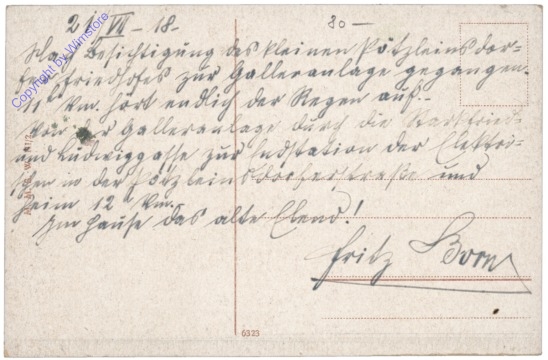 21/VII - 18.
80 —
Nach Besichtigung des kleinen Pötzleinsdor-
fer Friedhofes zur Galleranlage gegangen.
11 Vm. hört endlich der Regen auf.
Von der Galleranlage durch die Starkfried-
und Ludwiggasse zur Endstation der Elektri-
schen in der Pötzleinsdorferstraße und
heim 12 Vm.
Im Hause das alte Elend!
Fritz Born
Copyright by Wirnstore
6323